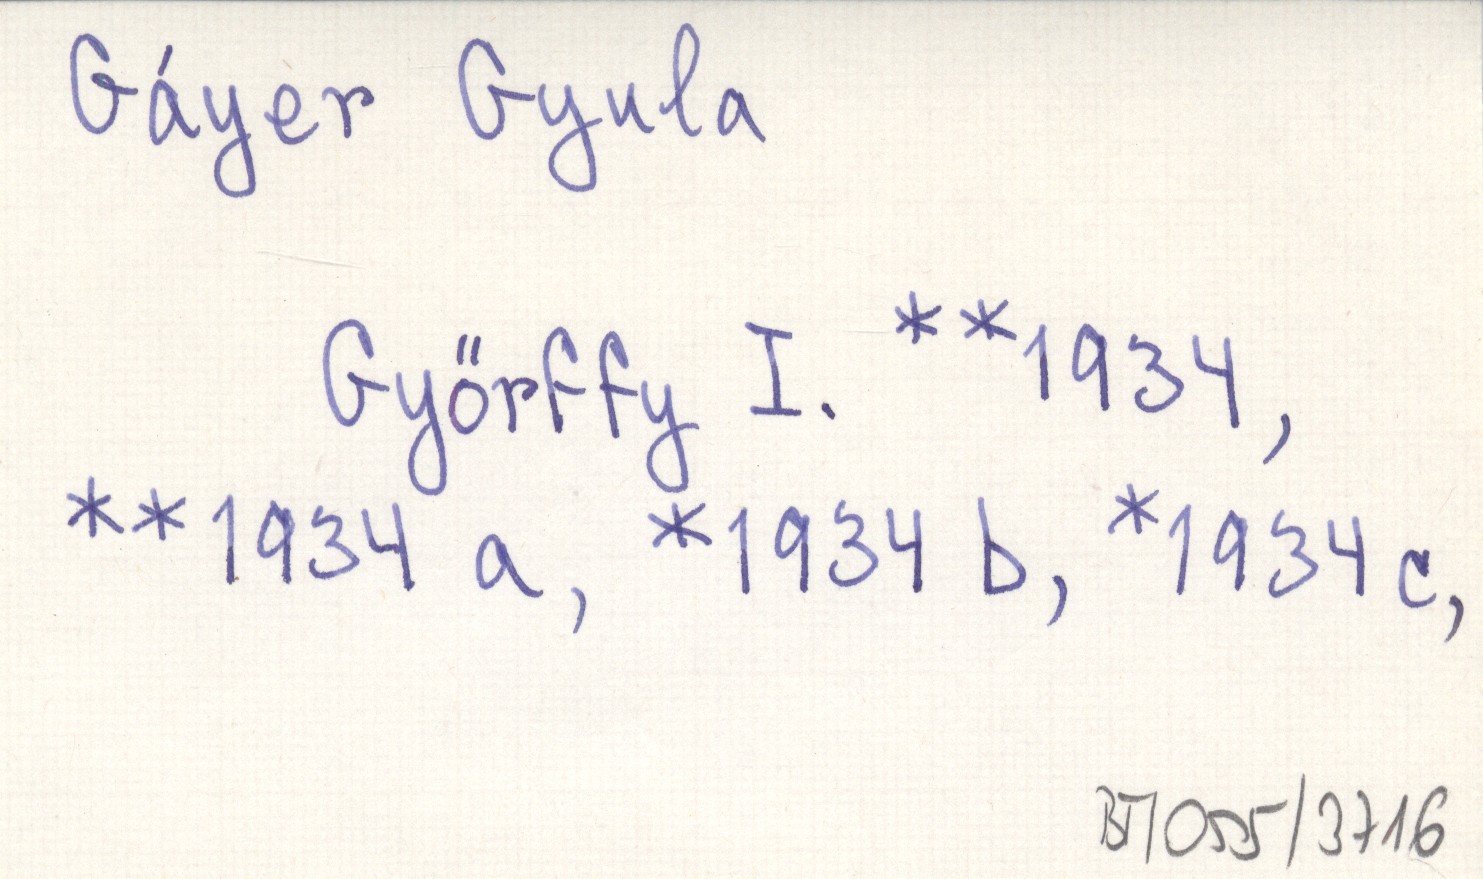 Gáyer Gyula
Győrffy I. **1934,
**1934 a, *1934 b, *1934 c,
BT/055/3716